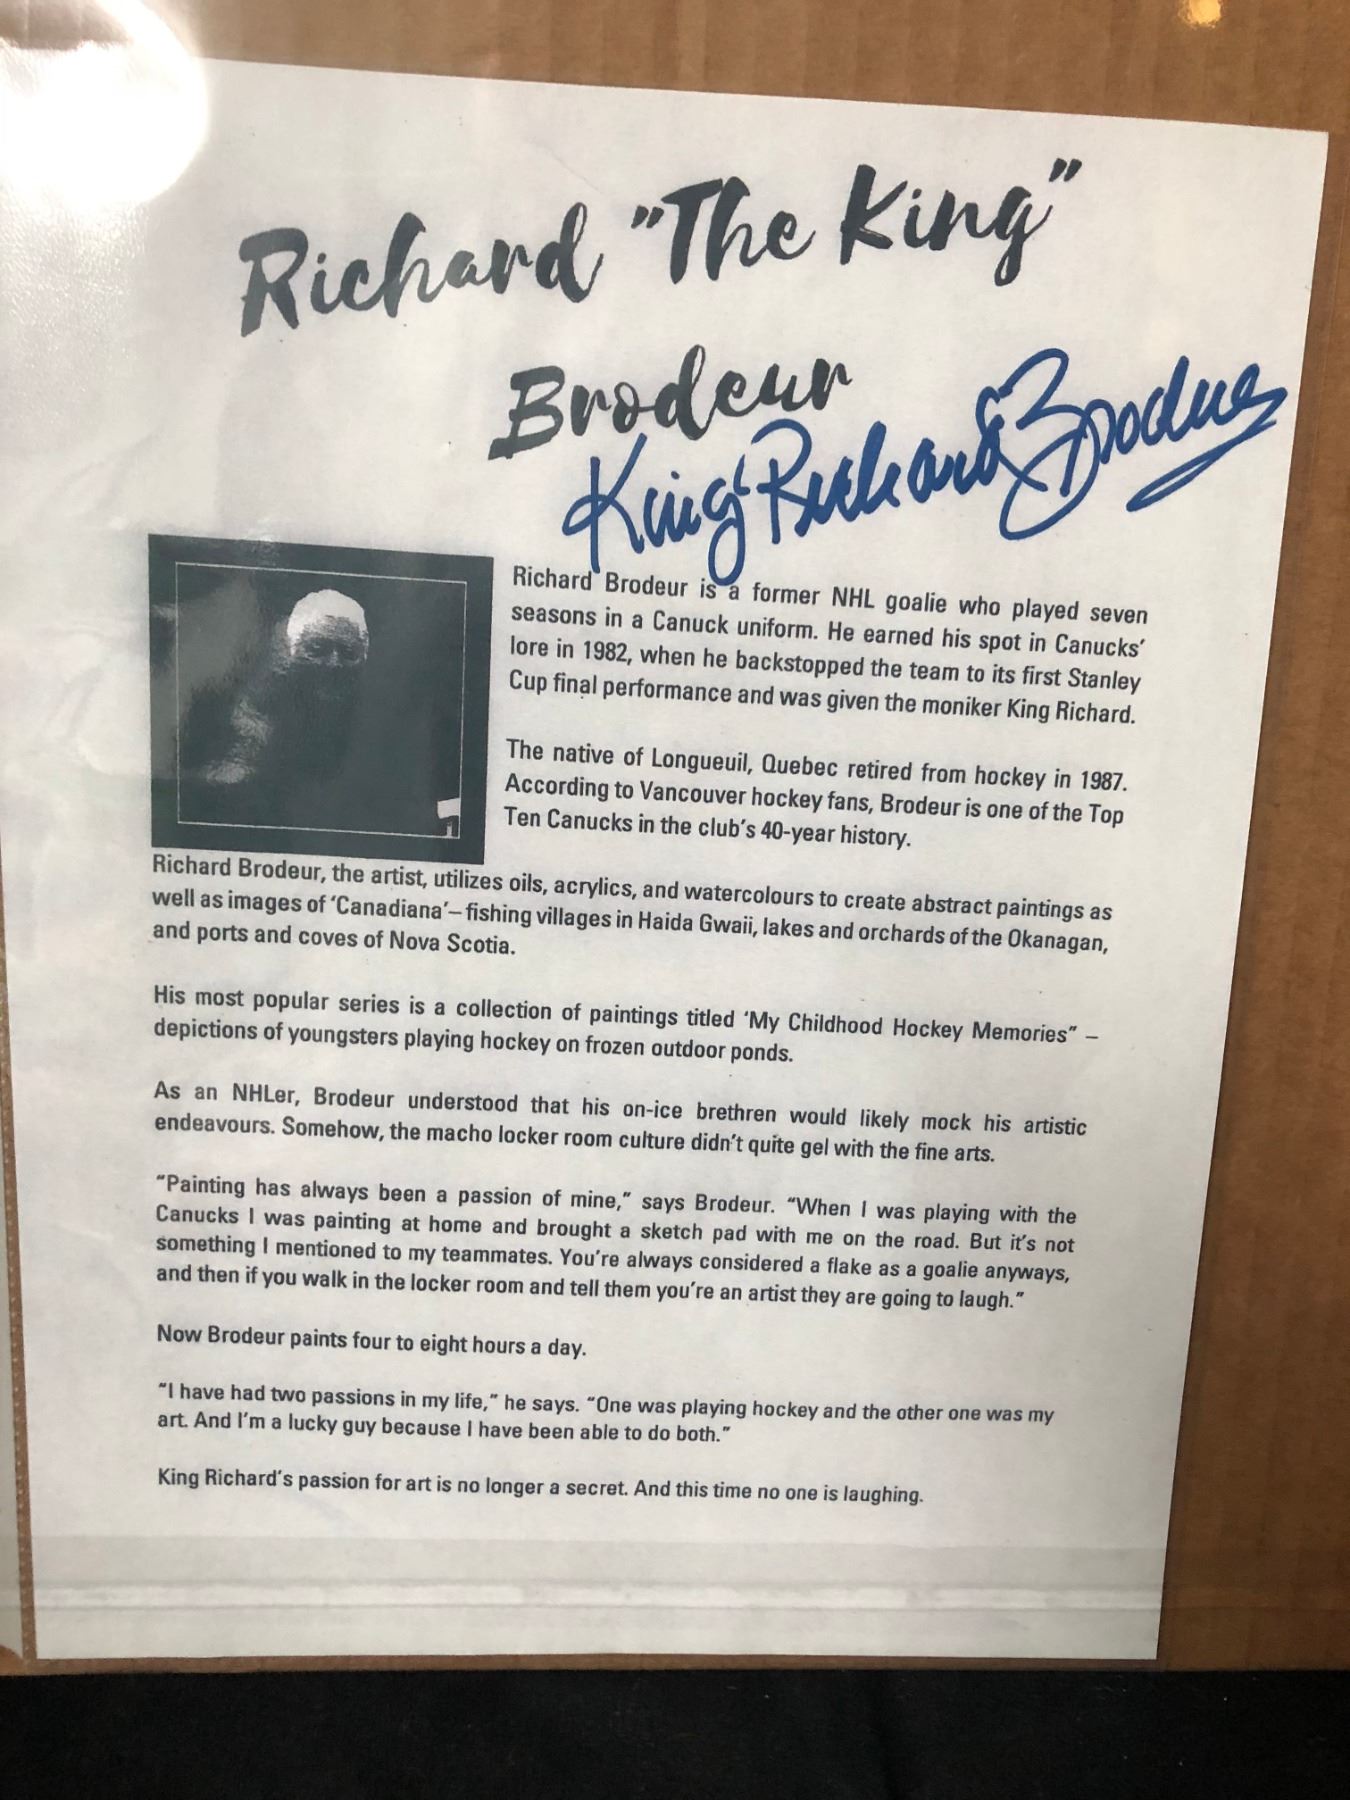 Richard "The King"
Brodeur
King Richard Brodeur
Richard Brodeur is a former NHL goalie who played seven
seasons in a Canuck uniform. He earned his spot in Canucks'
lore in 1982, when he backstopped the team to its first Stanley
Cup final performance and was given the moniker King Richard.
The native of Longueuil, Quebec retired from hockey in 1987.
According to Vancouver hockey fans, Brodeur is one of the Top
Ten Canucks in the club's 40-year history.
Richard Brodeur, the artist, utilizes oils, acrylics, and watercolours to create abstract paintings as
well as images of 'Canadiana'– fishing villages in Haida Gwaii, lakes and orchards of the Okanagan,
and ports and coves of Nova Scotia.
His most popular series is a collection of paintings titled 'My Childhood Hockey Memories" –
depictions of youngsters playing hockey on frozen outdoor ponds.
As an NHLer, Brodeur understood that his on-ice brethren would likely mock his artistic
endeavours. Somehow, the macho locker room culture didn't quite gel with the fine arts.
"Painting has always been a passion of mine," says Brodeur. "When I was playing with the
Canucks I was painting at home and brought a sketch pad with me on the road. But it's not
something I mentioned to my teammates. You're always considered a flake as a goalie anyways,
and then if you walk in the locker room and tell them you're an artist they are going to laugh."
Now Brodeur paints four to eight hours a day.
"I have had two passions in my life," he says. "One was playing hockey and the other one was my
art. And I'm a lucky guy because I have been able to do both."
King Richard's passion for art is no longer a secret. And this time no one is laughing.